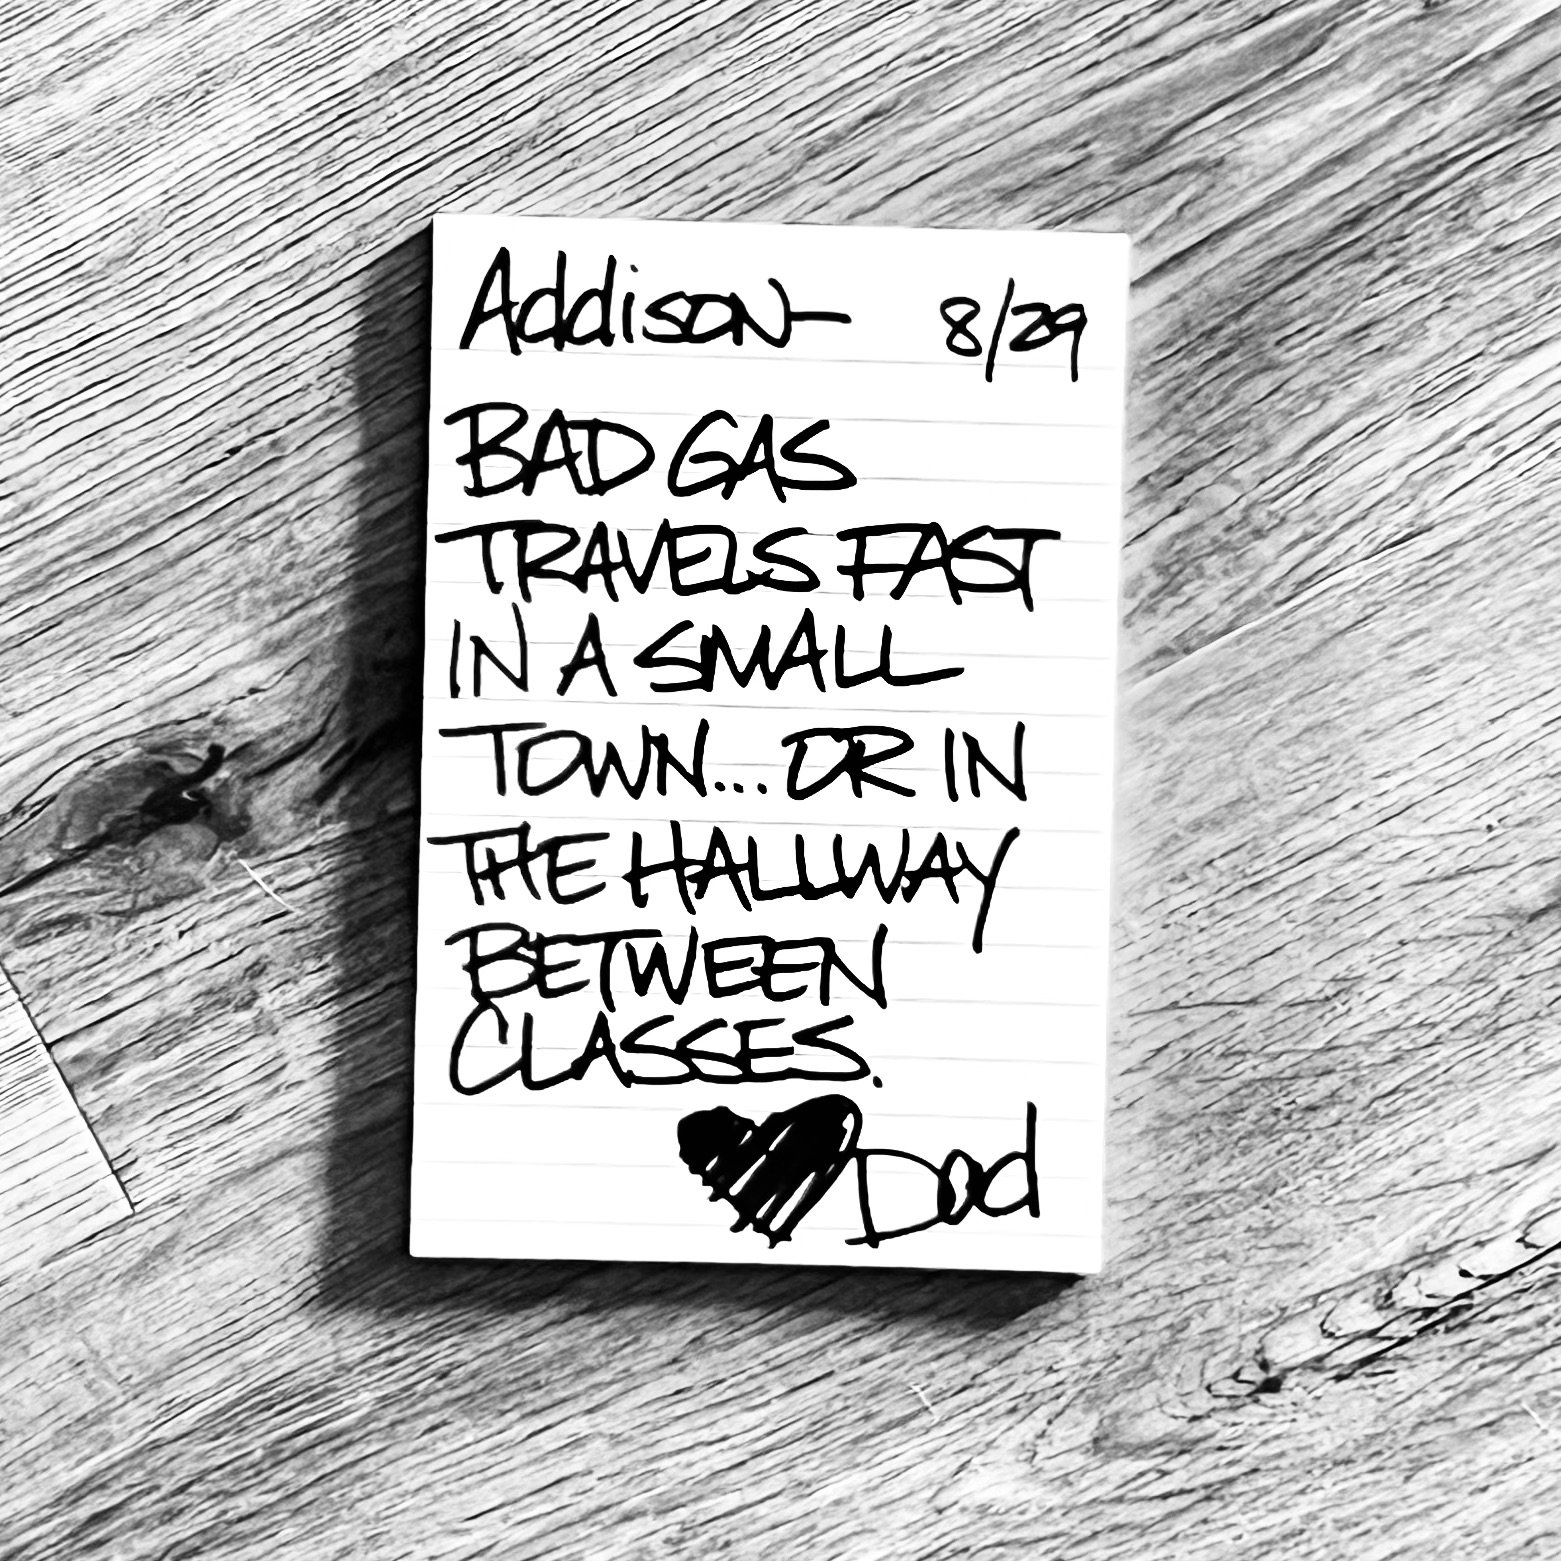 Addison- 8/29
BAD GAS
TRAVELS FAST
IN A SMALL
TOWN... OR IN
THE HALLWAY
BETWEEN
CLASSES.
Dad